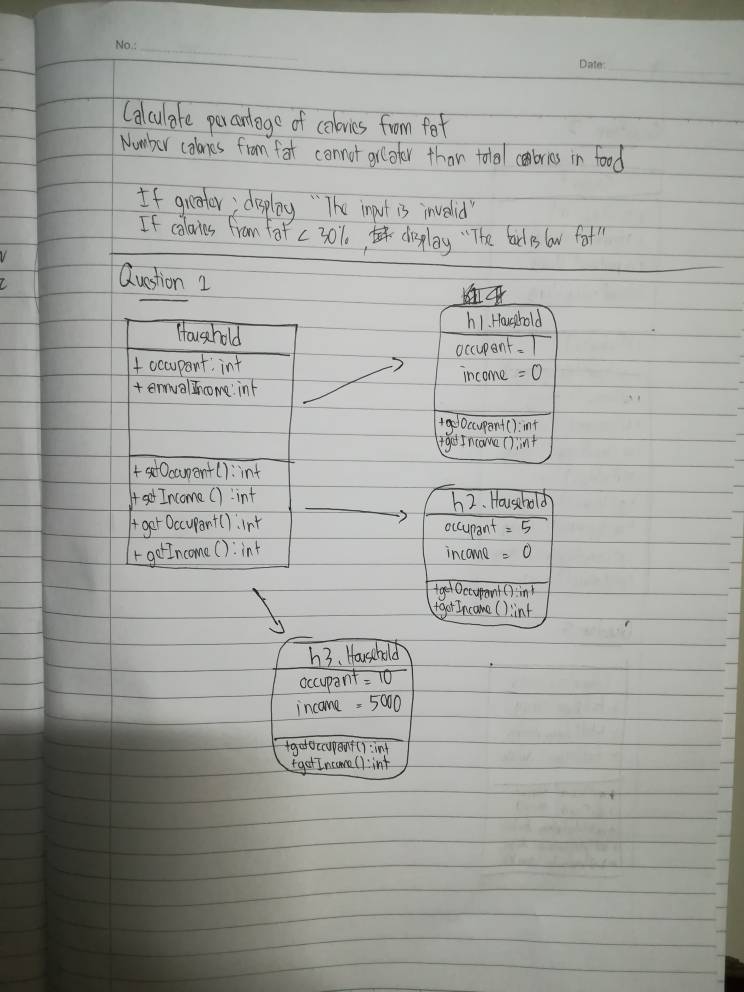 No.:
Date:
Calculate percentage of calories from fat
Number calories from fat cannot greater than total calories in food
If greater; display "The input is invalid"
If calories from fat < 30%, display "The food is low fat"
Question 1
Household
+ occupant: int
+ annualIncome: int
+ setOccupant(): int
+ setIncome(): int
+ getOccupant(): int
+ getIncome(): int
h1.Household
occupant = 1
income = 0
+getOccupant():int
+getIncome():int
h2.Household
occupant = 5
income = 0
+getOccupant():int
+getIncome():int
h3.Household
occupant = 10
income = 5000
+getOccupant():int
+getIncome():int